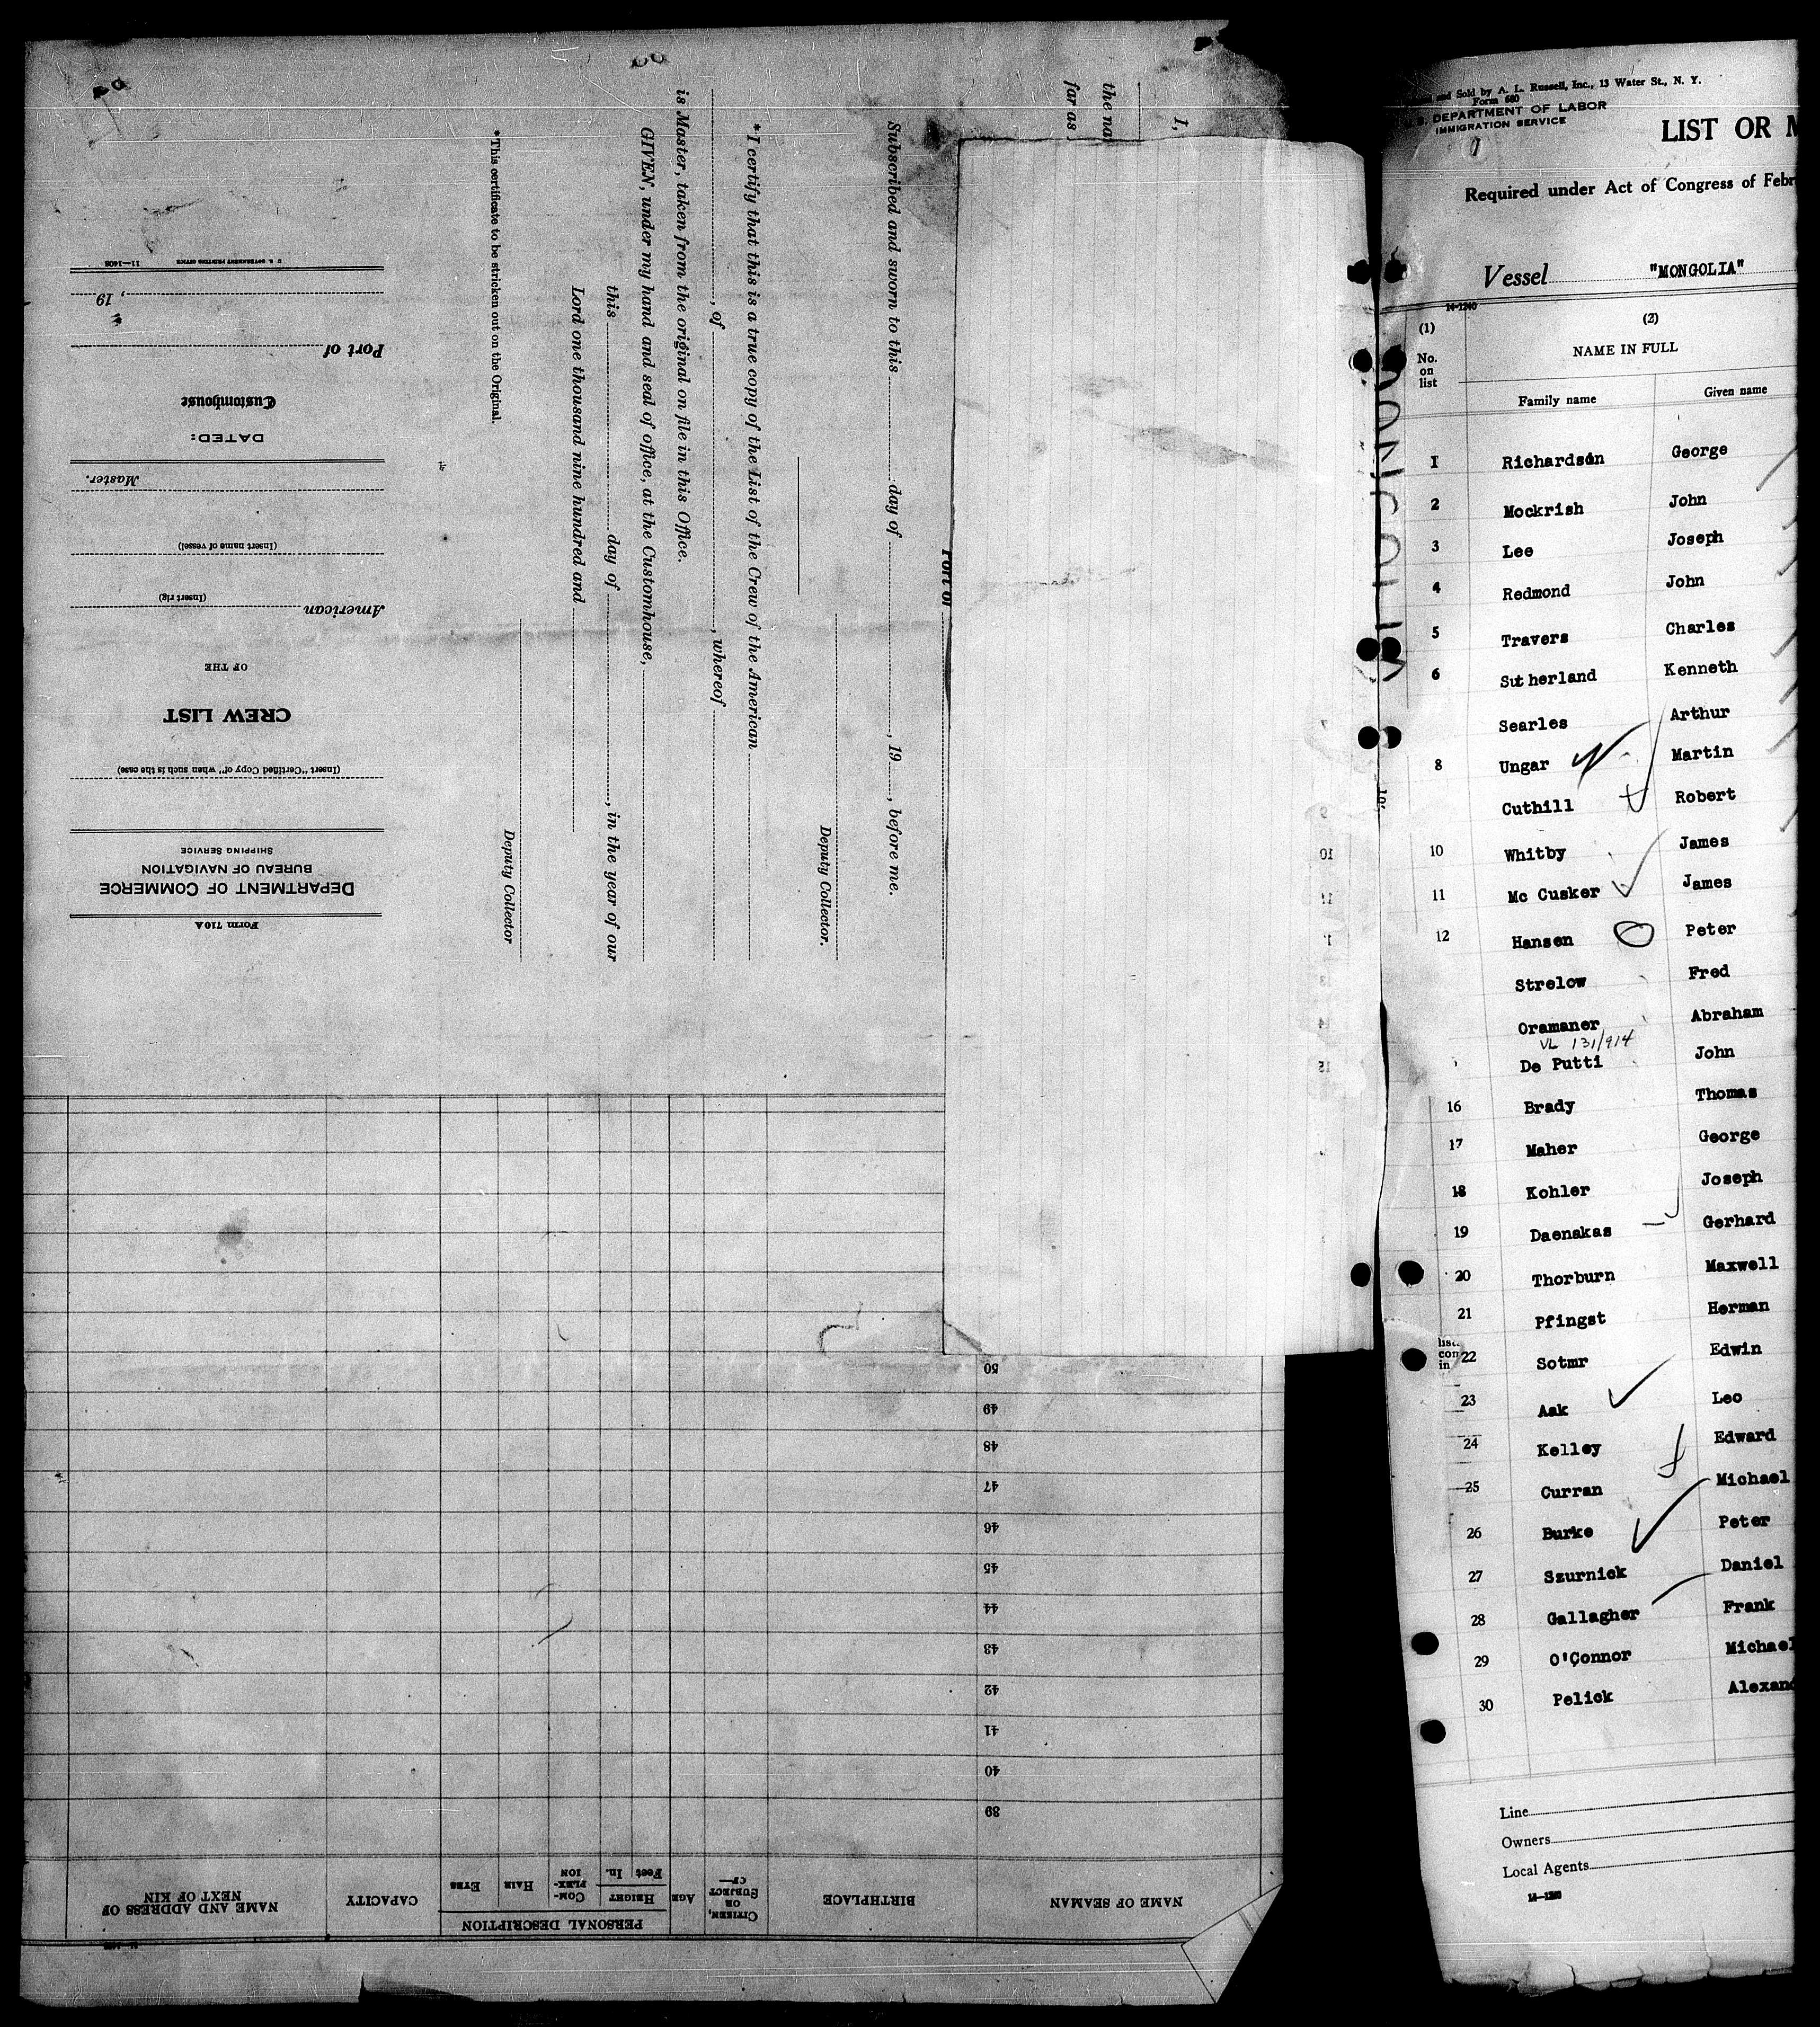 the na
far as
I,
Subscribed and sworn to this day of , 19 , before me.
Deputy Collector.
*I certify that this is a true copy of the List of the Crew of the American
, of , whereof
is Master, taken from the original on file in this Office.
GIVEN, under my hand and seal of office, at the Customhouse,
this day of , in the year of our
Lord one thousand nine hundred and
Deputy Collector
*This certificate to be stricken out on the Original.
Port of
Form 710A
DEPARTMENT OF COMMERCE
BUREAU OF NAVIGATION
SHIPPING SERVICE
(Insert "Certified Copy of" when such is the case)
CREW LIST
OF THE
American
(Insert rig)
(Insert name of vessel)
Master.
DATED:
Customhouse
Port of
, 19
U. S. GOVERNMENT PRINTING OFFICE 11—1408
NAME OF SEAMAN
BIRTHPLACE
CITIZEN, OR SUBJECT OF—
AGE
PERSONAL DESCRIPTION
HEIGHT
Feet In.
COM-PLEX-ION
HAIR
EYES
CAPACITY
NAME AND ADDRESS OF NEXT OF KIN
39
40
41
42
43
44
45
46
47
48
49
50
and Sold by A. L. Russell, Inc., 13 Water St., N. Y.
Form 680
U. S. DEPARTMENT OF LABOR
IMMIGRATION SERVICE
LIST OR M
Required under Act of Congress of Febr
Vessel "MONGOLIA"
14-1240
(1) (2)
No. on list
NAME IN FULL
Family name Given name
1 Richardson George
2 Mockrish John
3 Lee Joseph
4 Redmond John
5 Travers Charles
6 Sutherland Kenneth
Searles Arthur
8 Ungar Martin
Cuthill Robert
10 Whitby James
11 Mc Cusker James
12 Hansen Peter
Strelow Fred
Oramaner Abraham
VL 131/914
De Putti John
16 Brady Thomas
17 Maher George
18 Kohler Joseph
19 Daenskas Gerhard
20 Thorburn Maxwell
21 Pfingst Herman
22 Sotmr Edwin
23 Aak Leo
24 Kelley Edward
25 Curran Michael
26 Burke Peter
27 Szurnick Daniel
28 Gallagher Frank
29 O'Connor Michael
30 Pelick Alexand
Line
Owners
Local Agents
14—1240